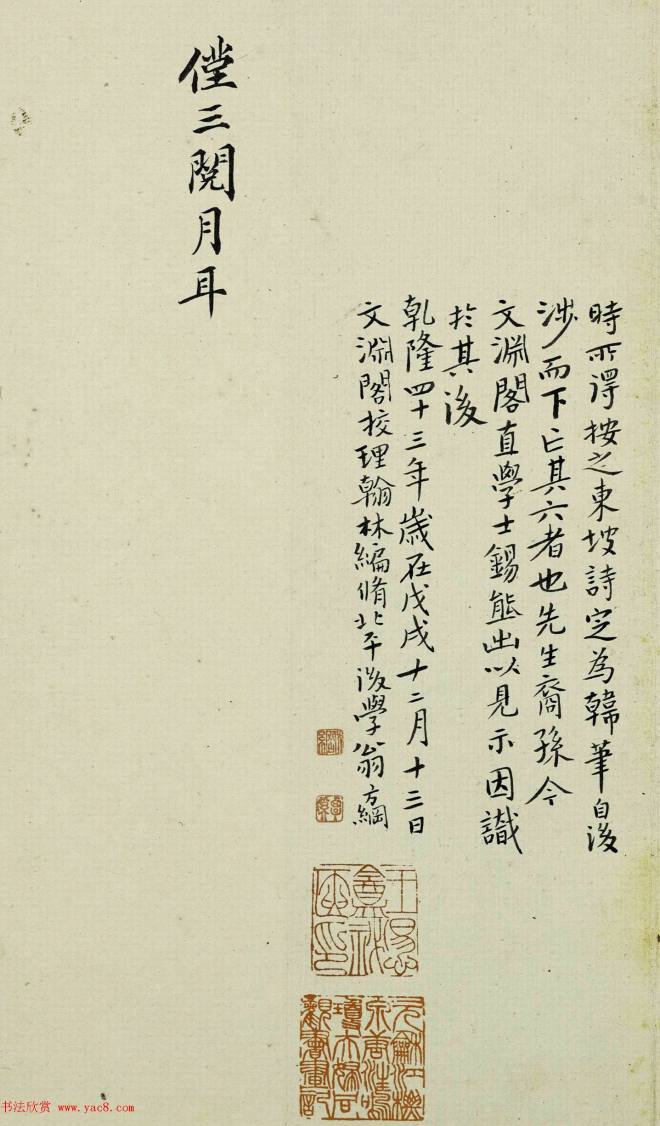 時所得按之東坡詩定為韓筆自後
涉而下亡其六者也先生裔孫今
文淵閣直學士錫熊出以見示因識
於其後
乾隆四十三年歲在戊戌十二月十三日
文淵閣校理翰林編脩北平後學翁方綱
儻三閱月耳
书法欣赏 www.yac8.com